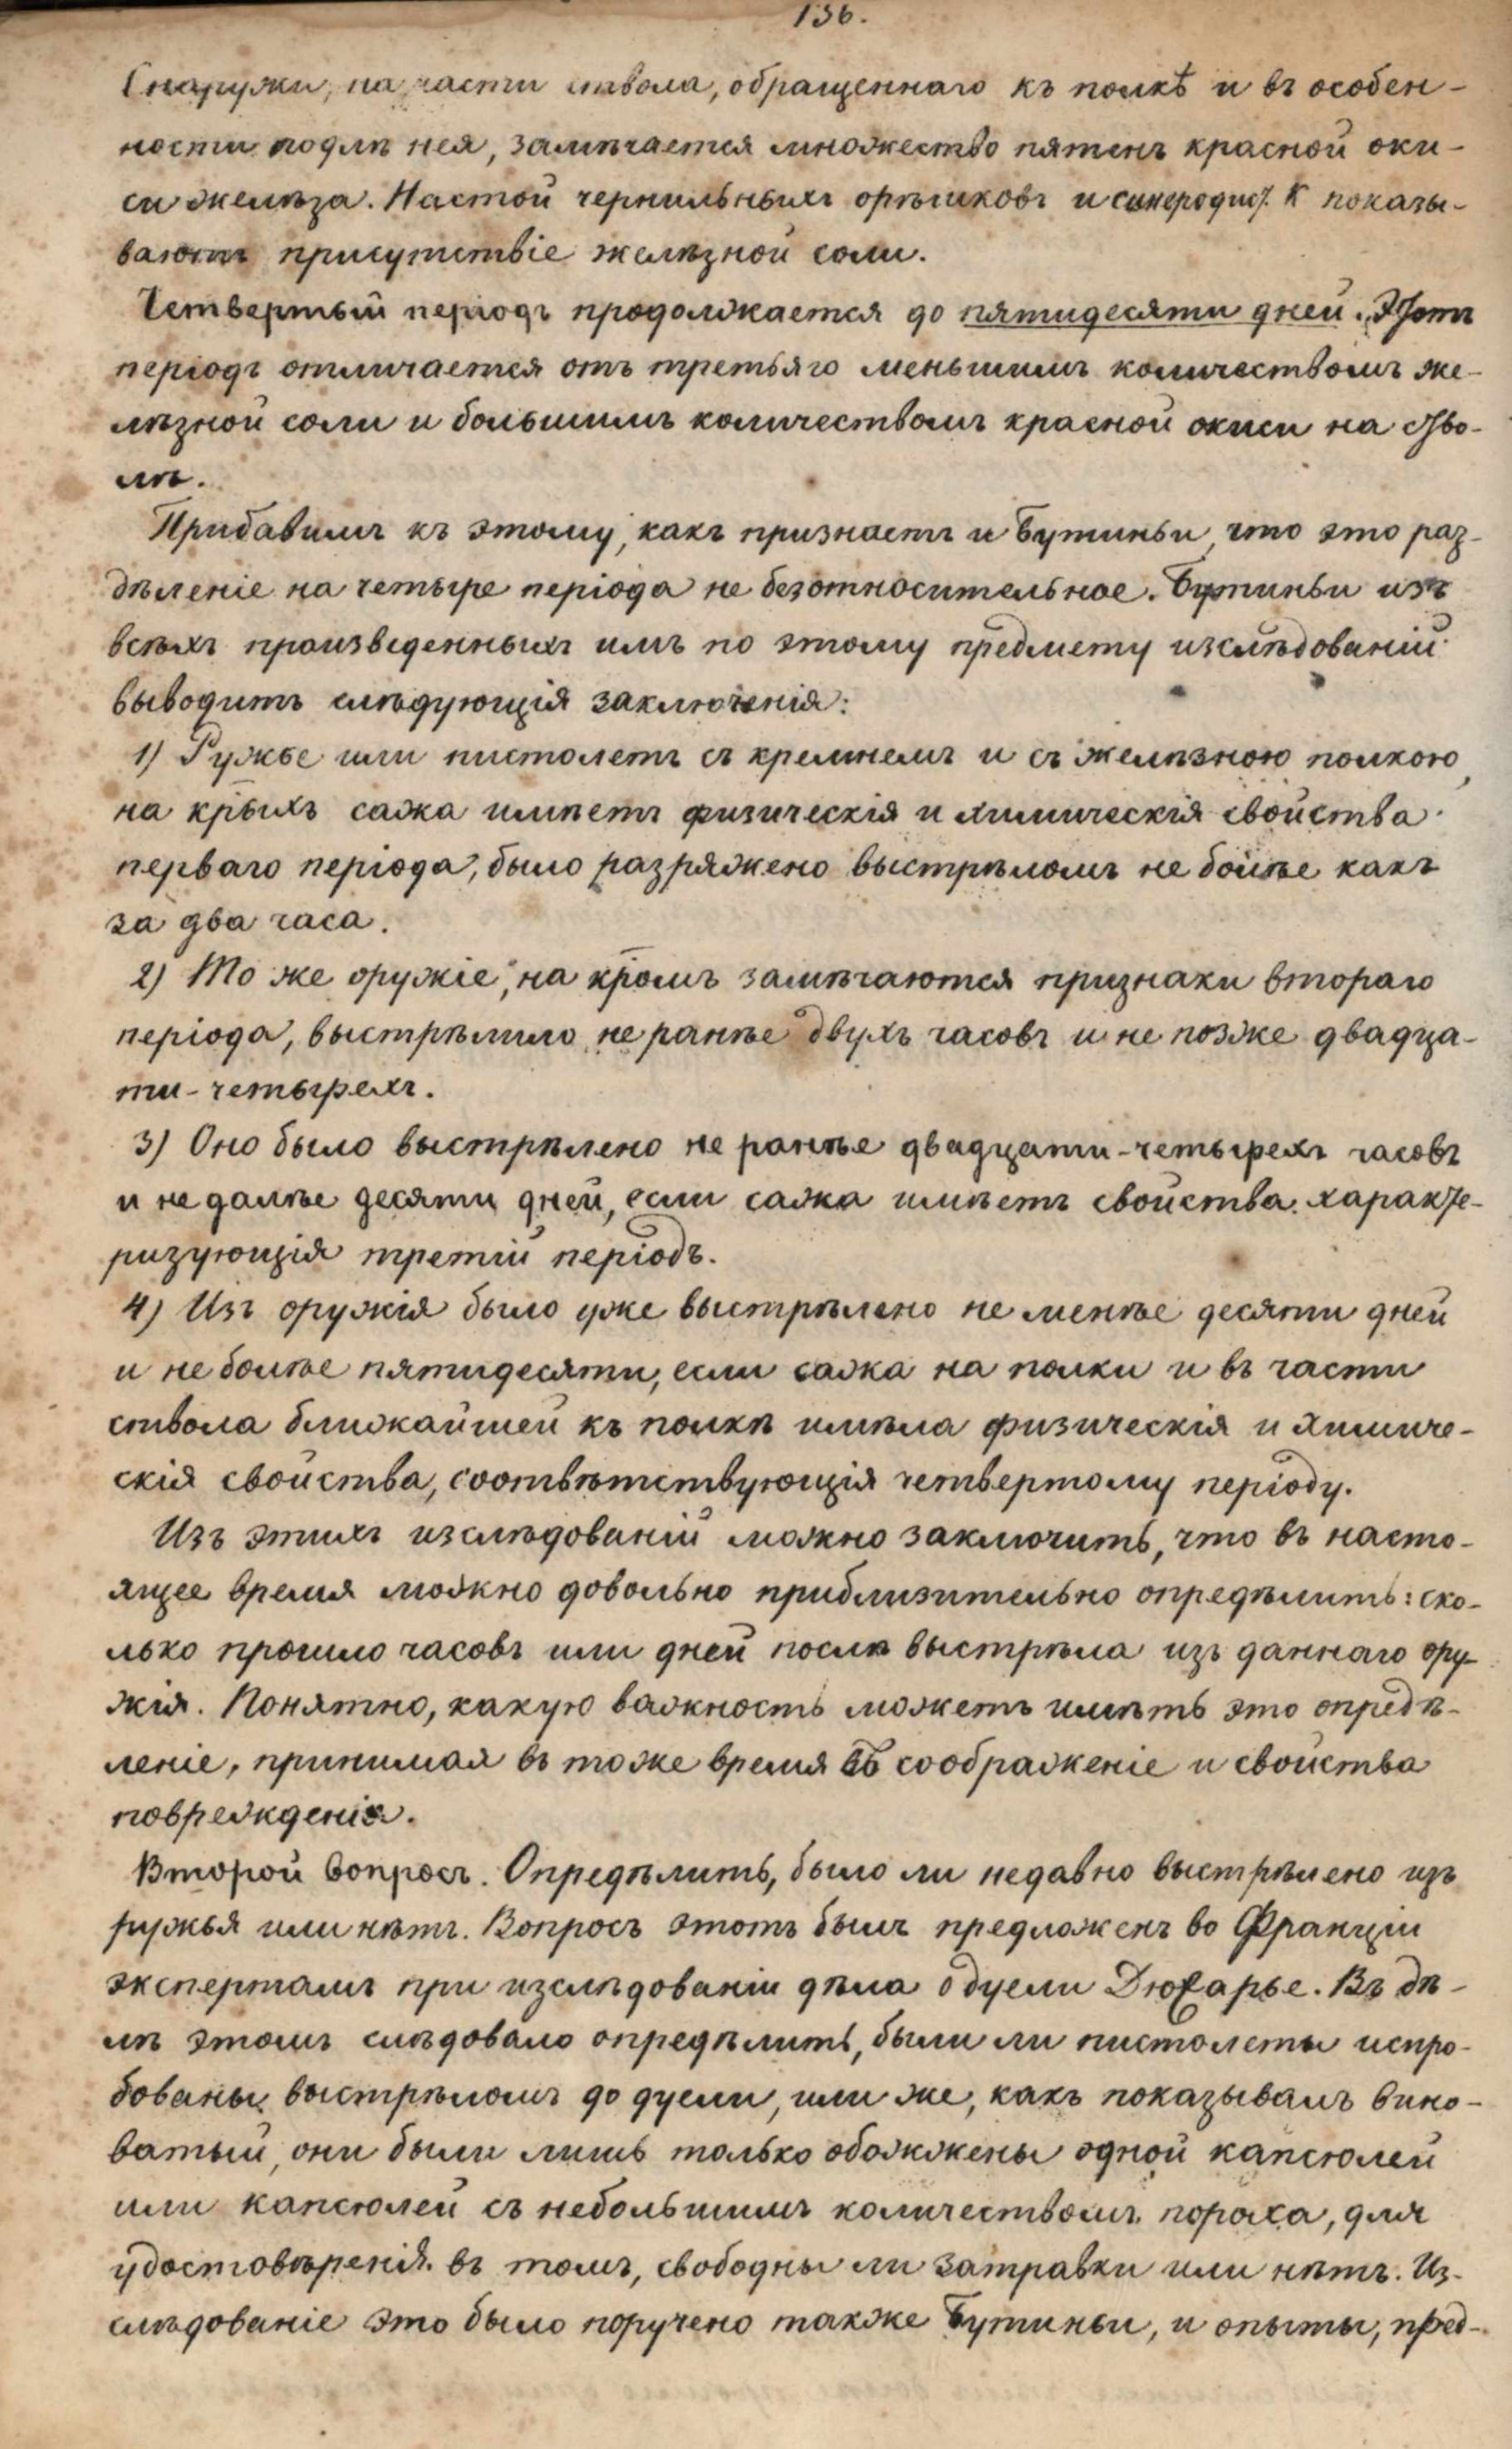 136.
Снаружи, на части ствола, обращеннаго къ полкѣ и въ особен-
ности подлѣ нея, замѣчается множество пятенъ красной оки-
си желѣза. Настой чернильныхъ орѣшковъ и синеродис. К показы-
ваютъ присутствіе желѣзной соли.
Четвертый періодъ продолжается до пятидесяти дней. Этотъ
періодъ отличается отъ третьяго меньшимъ количествомъ же-
лѣзной соли и большимъ количествомъ красной окиси на ство-
лѣ.
Прибавимъ къ этому, какъ признаетъ и Бутиньи, что это раз-
дѣленіе на четыре періода не безотносительное. Бутиньи изъ
всѣхъ произведенныхъ имъ по этому предмету изслѣдованій
выводитъ слѣдующія заключенія:
1) Ружье или пистолетъ съ кремнемъ и съ желѣзною полкою,
на крыхъ сажа имѣетъ физическія и химическія свойства
перваго періода, было разряжено выстрѣломъ не болѣе какъ
за два часа.
2) То же оружіе, на кромъ замѣчаются признаки втораго
періода, выстрѣлило не ранѣе двухъ часовъ и не позже двадца-
ти-четырехъ.
3) Оно было выстрѣлено не ранѣе двадцати-четырехъ часовъ
и не далѣе десяти дней, если сажа имѣетъ свойства характе-
ризующія третій періодъ.
4) Изъ оружія было уже выстрѣлено не менѣе десяти дней
и не болѣе пятидесяти, если сажа на полки и въ части
ствола ближайшей къ полкѣ имѣла физическія и химиче-
скія свойства, соотвѣтствующія четвертому періоду.
Изъ этихъ изслѣдованій можно заключить, что въ насто-
ящее время можно довольно приблизительно опредѣлить: ско-
лько прошло часовъ или дней послѣ выстрѣла изъ даннаго ору-
жія. Понятно, какую важность можетъ имѣть это опредѣ-
леніе, принимая въ тоже время въ соображеніе и свойства
поврежденія.
Второй вопросъ. Опредѣлить, было ли недавно выстрѣлено изъ
ружья или нѣтъ. Вопросъ этотъ былъ предложенъ во Франціи
экспертамъ при изслѣдованіи дѣла о дуели Дюжарье. Въ дѣ-
лѣ этомъ слѣдовало опредѣлить, были ли пистолеты испро-
бованы выстрѣломъ до дуели, или же, какъ показывалъ вино-
ватый, они были лишь только обожжены одной капсюлей
или капсюлей съ небольшимъ количествомъ пороха, для
удостовѣренія въ томъ, свободны ли затравки или нѣтъ. Из-
слѣдованіе это было поручено также Бутиньи, и опыты, пред-